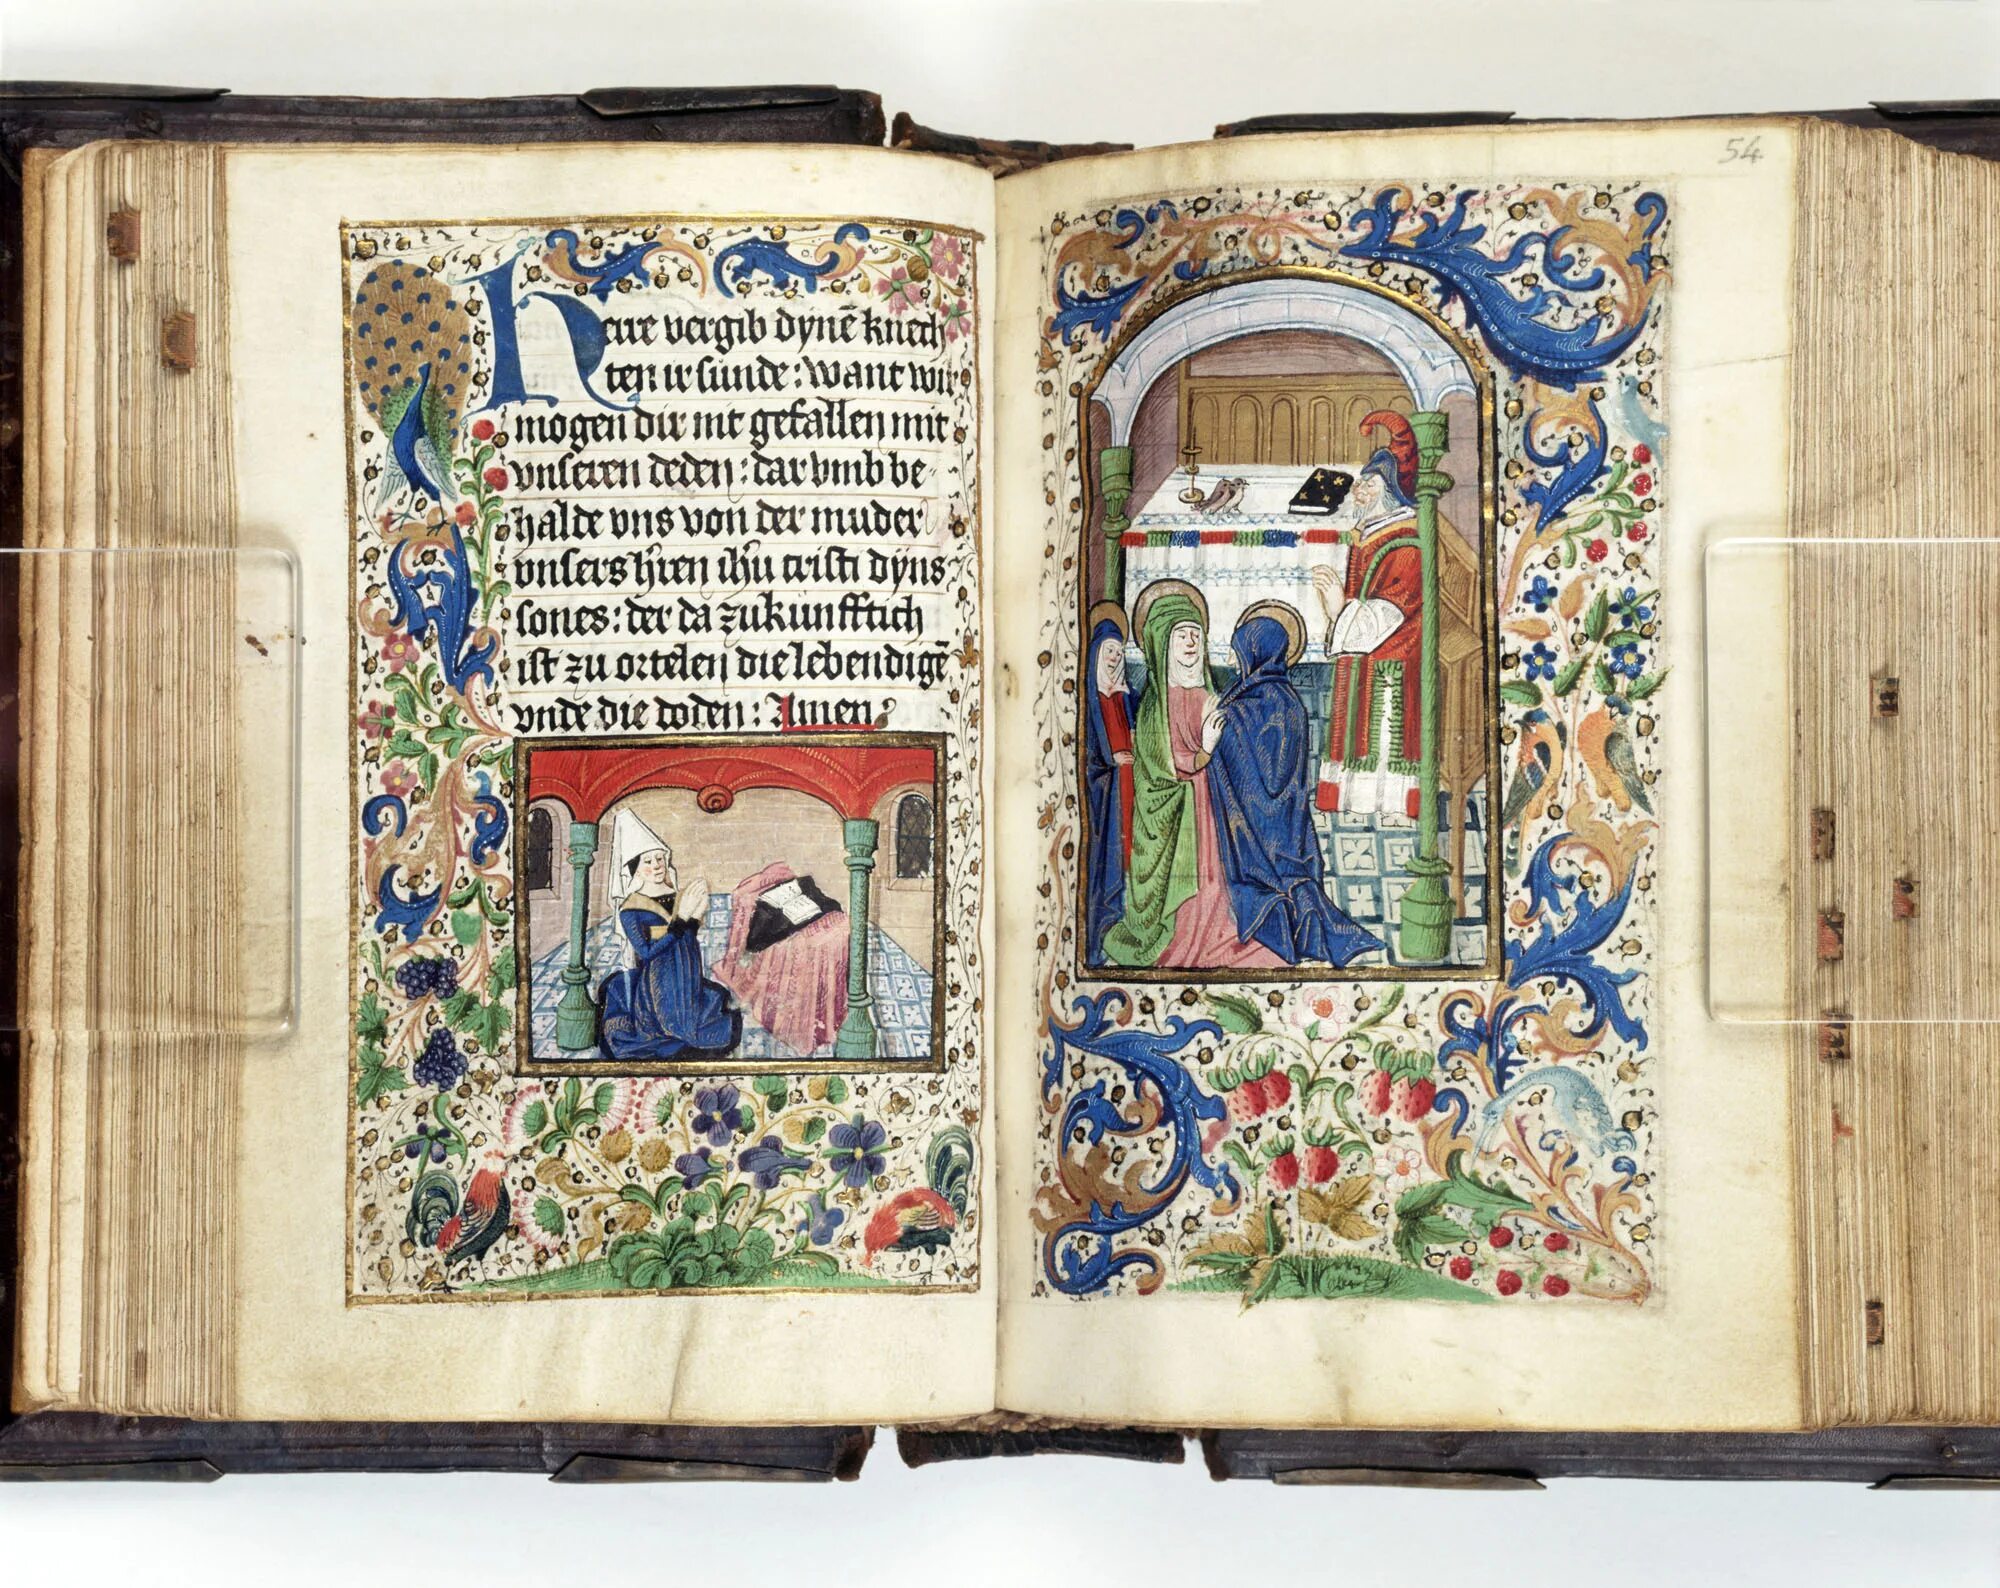 Herre vergib dynē knech
ten ir sunde: want wir
mogen dir nit gefallen mit
vnseren deden: dar vmb be-
halde vns von der muder
vnsers h̄ren ih̄u cristi dyns
sones: der da zukunfftich
ist zu ortelen die lebendigē
vnde die doden: Amen
54